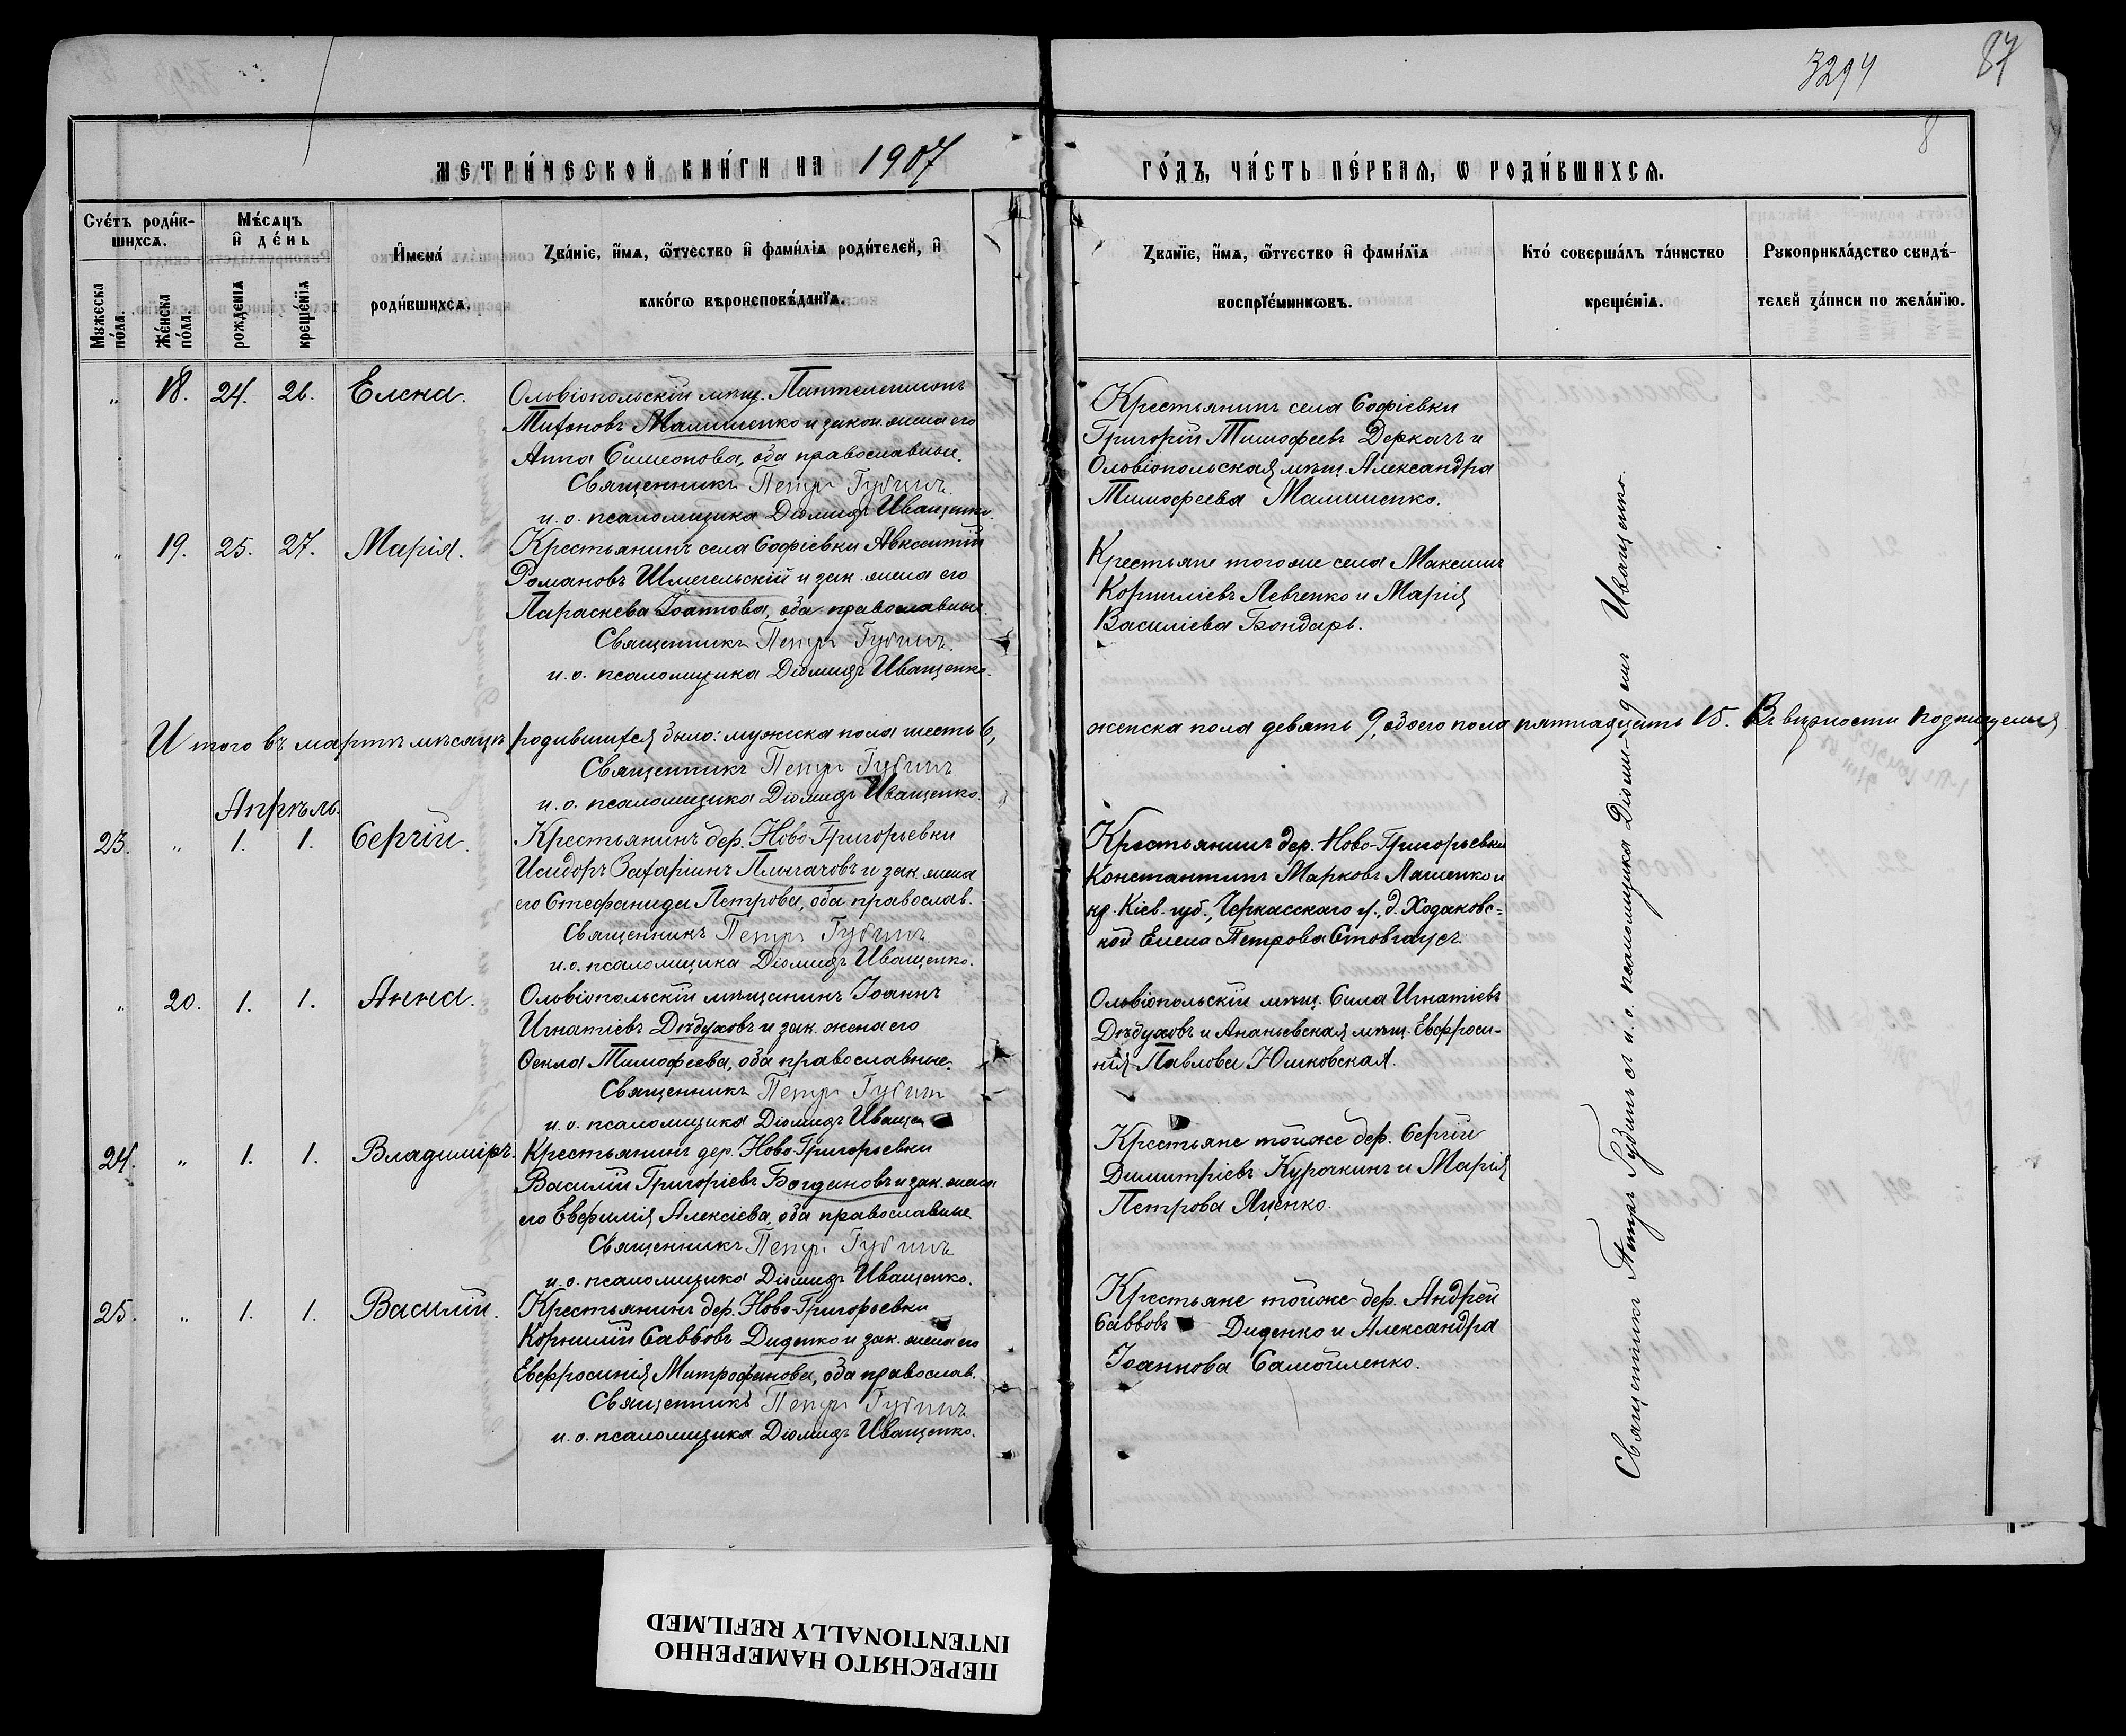 3294
87
8
МЕТРИ́ЧЕСКОЙ КНИ́ГИ НА 1907
ГО́ДЪ, ЧА́СТЬ ПЕ́РВАѦ, Ѡ РОДИ́ВШИХСѦ.
Сче́тъ роди́в-
шихсѧ.
Мꙋжеска по́ла.
Же́нска по́ла.
Мѣ́сѧцъ
и҆ де́нь
рожденїѧ
креще́нїѧ
И҆мена́
роди́вшихсѧ.
Зва́нїе, и҆́мѧ, ѻ҆́тчество и҆ фами́лїѧ роди́телей, и҆
како́гѡ вѣроисповѣ́данїѧ.
Зва́нїе, и҆́мѧ, ѻ҆́тчество и҆ фами́лїѧ
воспрїе́мникѡвъ.
Кто́ соверша́лъ та́инство
креще́нїѧ.
Рꙋкоприкла́дство свидѣ́-
телей за́писи по жела́нїю.
" 18. 24. 26. Елена.
Ольвіопольскій мѣщ. Пантелеимонъ
Титоновъ Малишенко и закон. жена его
Анна Симеонова, оба православные.
Священникъ Петръ Губинъ.
и. о. псаломщика Діомидъ Иващенко.
Крестьянинъ села Софіевки
Григорій Тимофеевъ Деркачъ и
Ольвіопольская мѣщ. Александра
Тимофеева Малишенко.
" 19. 25. 27. Марія.
Крестьянинъ села Софіевки Авксентій
Романовъ Шмегельскій и зак. жена его
Параскева Іоаннова, оба православные.
Священникъ Петръ Губинъ.
и. о. псаломщика Діомидъ Иващенко.
Крестьяне того же села Максимъ
Корниліевъ Левченко и Марія
Василіева Бондарь.
Итого въ мартѣ мѣсяцѣ родившихся было: мужеска пола шесть 6, женска пола девять 9, обоего пола пятнадцать 15. Въ вѣрности подпишемся
Священникъ Петръ Губинъ
и. о. псаломщика Діомидъ Иващенко.
Апрѣль.
23. " 1. 1. Сергій.
Крестьянинъ дер. Ново-Григорьевки
Исидоръ Захаріинъ Плыгачовъ и зак. жена
его Стефанида Петрова, оба православ.
Священникъ Петръ Губинъ
и. о. псаломщика Діомидъ Иващенко.
Крестьянинъ дер. Ново-Григорьевки
Константинъ Марковъ Ляшенко и
кр. Кіев. губ., Черкасскаго у., д. Ходаковс=
кой Елена Петрова Стовгаусъ.
" 20. 1. 1. Анна.
Ольвіопольскій мѣщанинъ Іоаннъ
Игнатіевъ Дѣдуховъ и зак. жена его
Ѳекла Тимофеева, оба православные.
Священникъ Петръ Губинъ
и. о. псаломщика Діомидъ Иваще
Ольвіопольскій мѣщ. Сила Игнатіевъ
Дѣдуховъ и Ананьевская мѣщ. Евфроси-
нія Павлова Юшковская.
24. " 1. 1. Владиміръ.
Крестьянинъ дер. Ново-Григорьевки
Василій Григоріевъ Богдановъ и зак. жена
его Евфимія Алексіева, оба православные
Священникъ Петръ Губинъ
и. о. псаломщика Діомидъ Иващенко.
Крестьяне тойже дер. Сергій
Димитріевъ Курочкинъ и Марія
Петрова Яценко.
25. " 1. 1. Василій.
Крестьянинъ дер. Ново-Григорьевки
Корнилій Саввовъ Диденко и зак. жена его
Евфросинія Митрофанова, оба православ.
Священникъ Петръ Губинъ
и. о. псаломщика Діомидъ Иващенко.
Крестьяне тойже дер. Андрей
Саввовъ Диденко и Александра
Іоаннова Самойленко.
Священникъ Петръ Губинъ съ и. о. псаломщика Діоми-домъ Иващенко.
ПЕРЕСНЯТО НАМЕРЕННО
INTENTIONALLY REFILMED